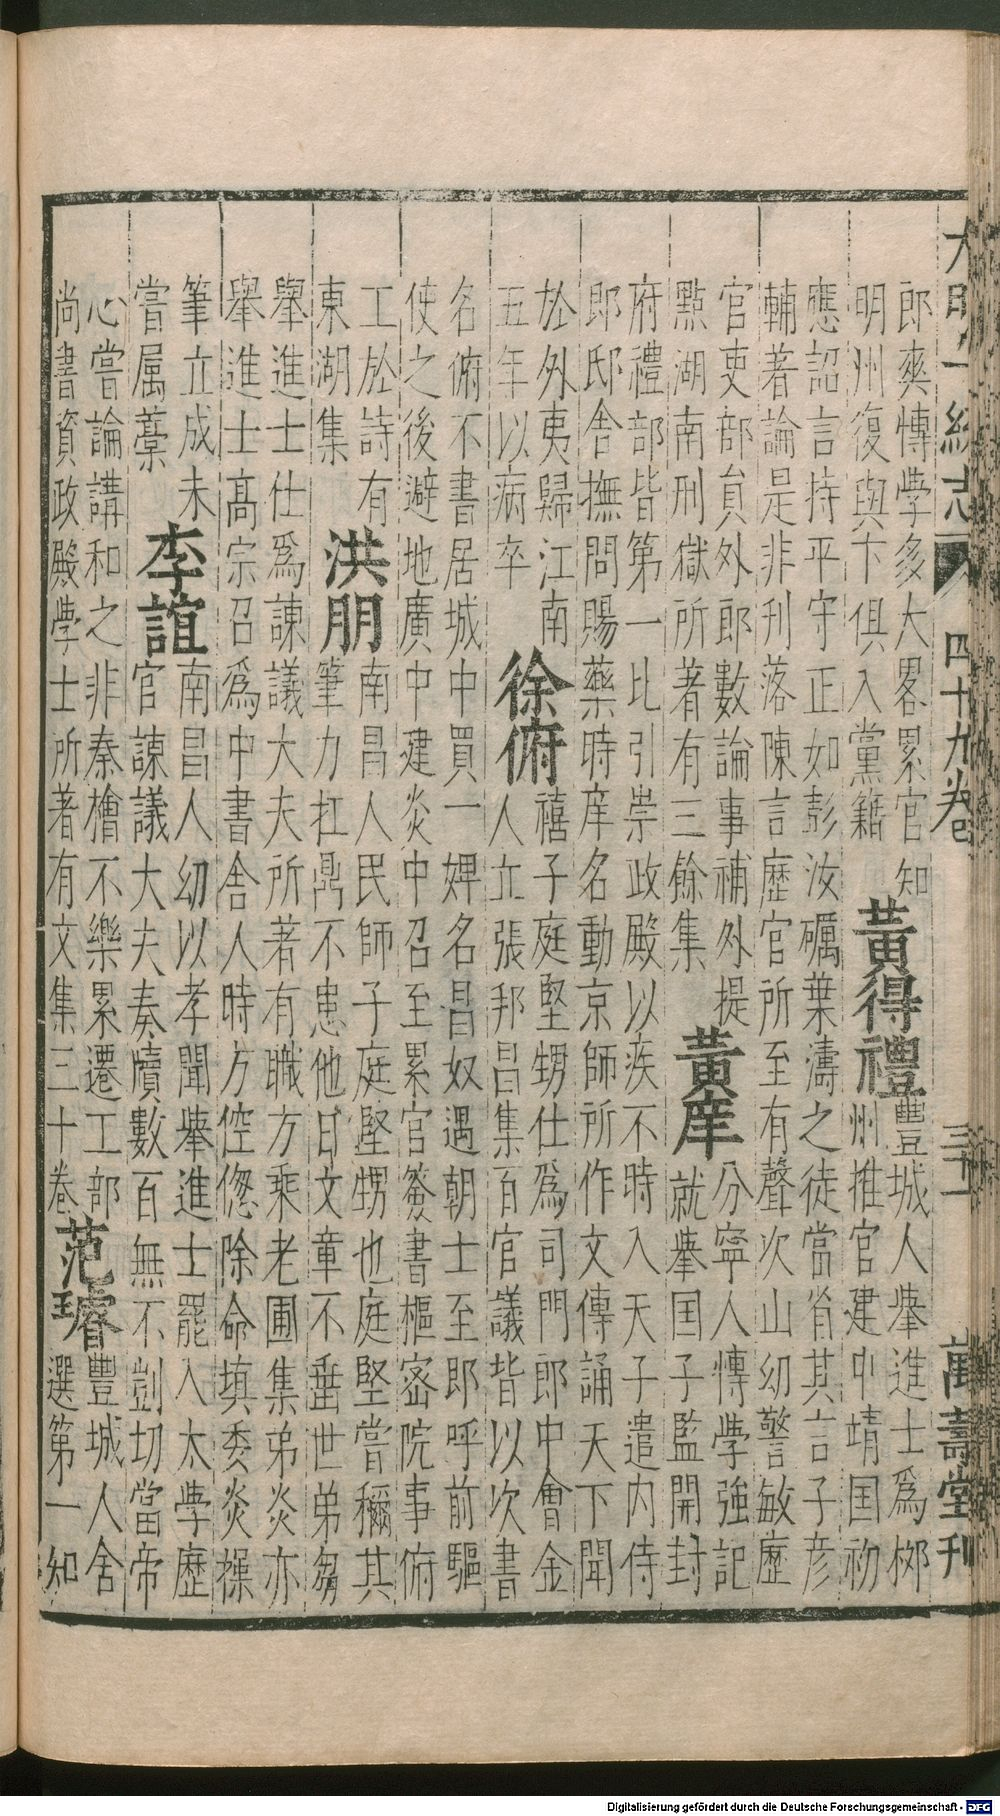 大明一統志 四十九卷 三十一 萬壽堂刊
郎爽慱學多大畧累官知
明州復與卞俱入黨籍
黃得禮
豐城人舉進士為郴
州推官建中靖囯初
應詔言持平守正如彭汝礪葉濤之徒當省其言子彥
輔著論是非刊落陳言歷官所至有聲次山幼警敏歷
官吏部員外郎數論事補外提
點湖南刑獄所著有三餘集
黃庠
分寧人慱學強記
就舉囯子監開封
府禮部皆第一比引崇政殿以疾不時入天子遣内侍
郎邸舍撫問賜藥時庠名動京師所作文傳誦天下聞
於外夷歸江南
五年以病卒
徐俯
禧子庭堅甥仕為司門郎中會金
人立張邦昌集百官議皆以次書
名俯不書居城中買一婢名昌奴遇朝士至即呼前驅
使之後避地廣中建炎中召至累官簽書樞宻院事俯
工於詩有
東湖集
洪朋
南昌人民師子庭堅甥也庭堅嘗稱其
筆力扛鼎不患他日文章不垂世弟芻
舉進士仕為諫議大夫所著有職方乘老圃集弟炎亦
舉進士髙宗召為中書舍人時方倥偬除命填委炎操
筆立成未
嘗属藁
李誼
南昌人幼以孝聞舉進士罷入太學歷
官諫議大夫奏牘數百無不剴切當帝
心嘗論講和之非秦檜不樂累遷工部
尚書資政殿学士所著有文集三十卷
范璿
豐城人舍
選第一知
Digitalisierung gefördert durch die Deutsche Forschungsgemeinschaft - DFG